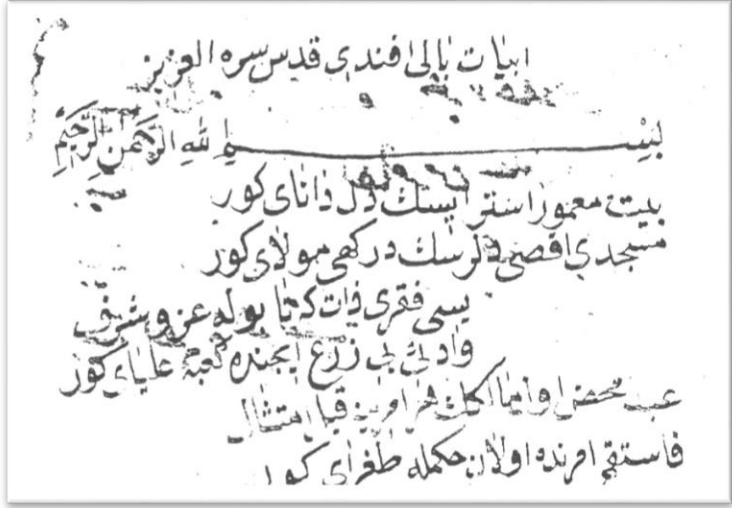 ابيات بالى افندى قدس سره العزيز
بسم الله الرحمن الرحيم
بيت معمور استر ايسك دل داناى كور
مسجدى اقصى دلرسك دركهى مولاى كور
فقرى ذات بوله عز و شرف
وادئ بى زرع ايچنده كعبۀ علياى كور
عبد محض قيل امتثال
فاستقم امرنده اولان حكمله طغراى كور